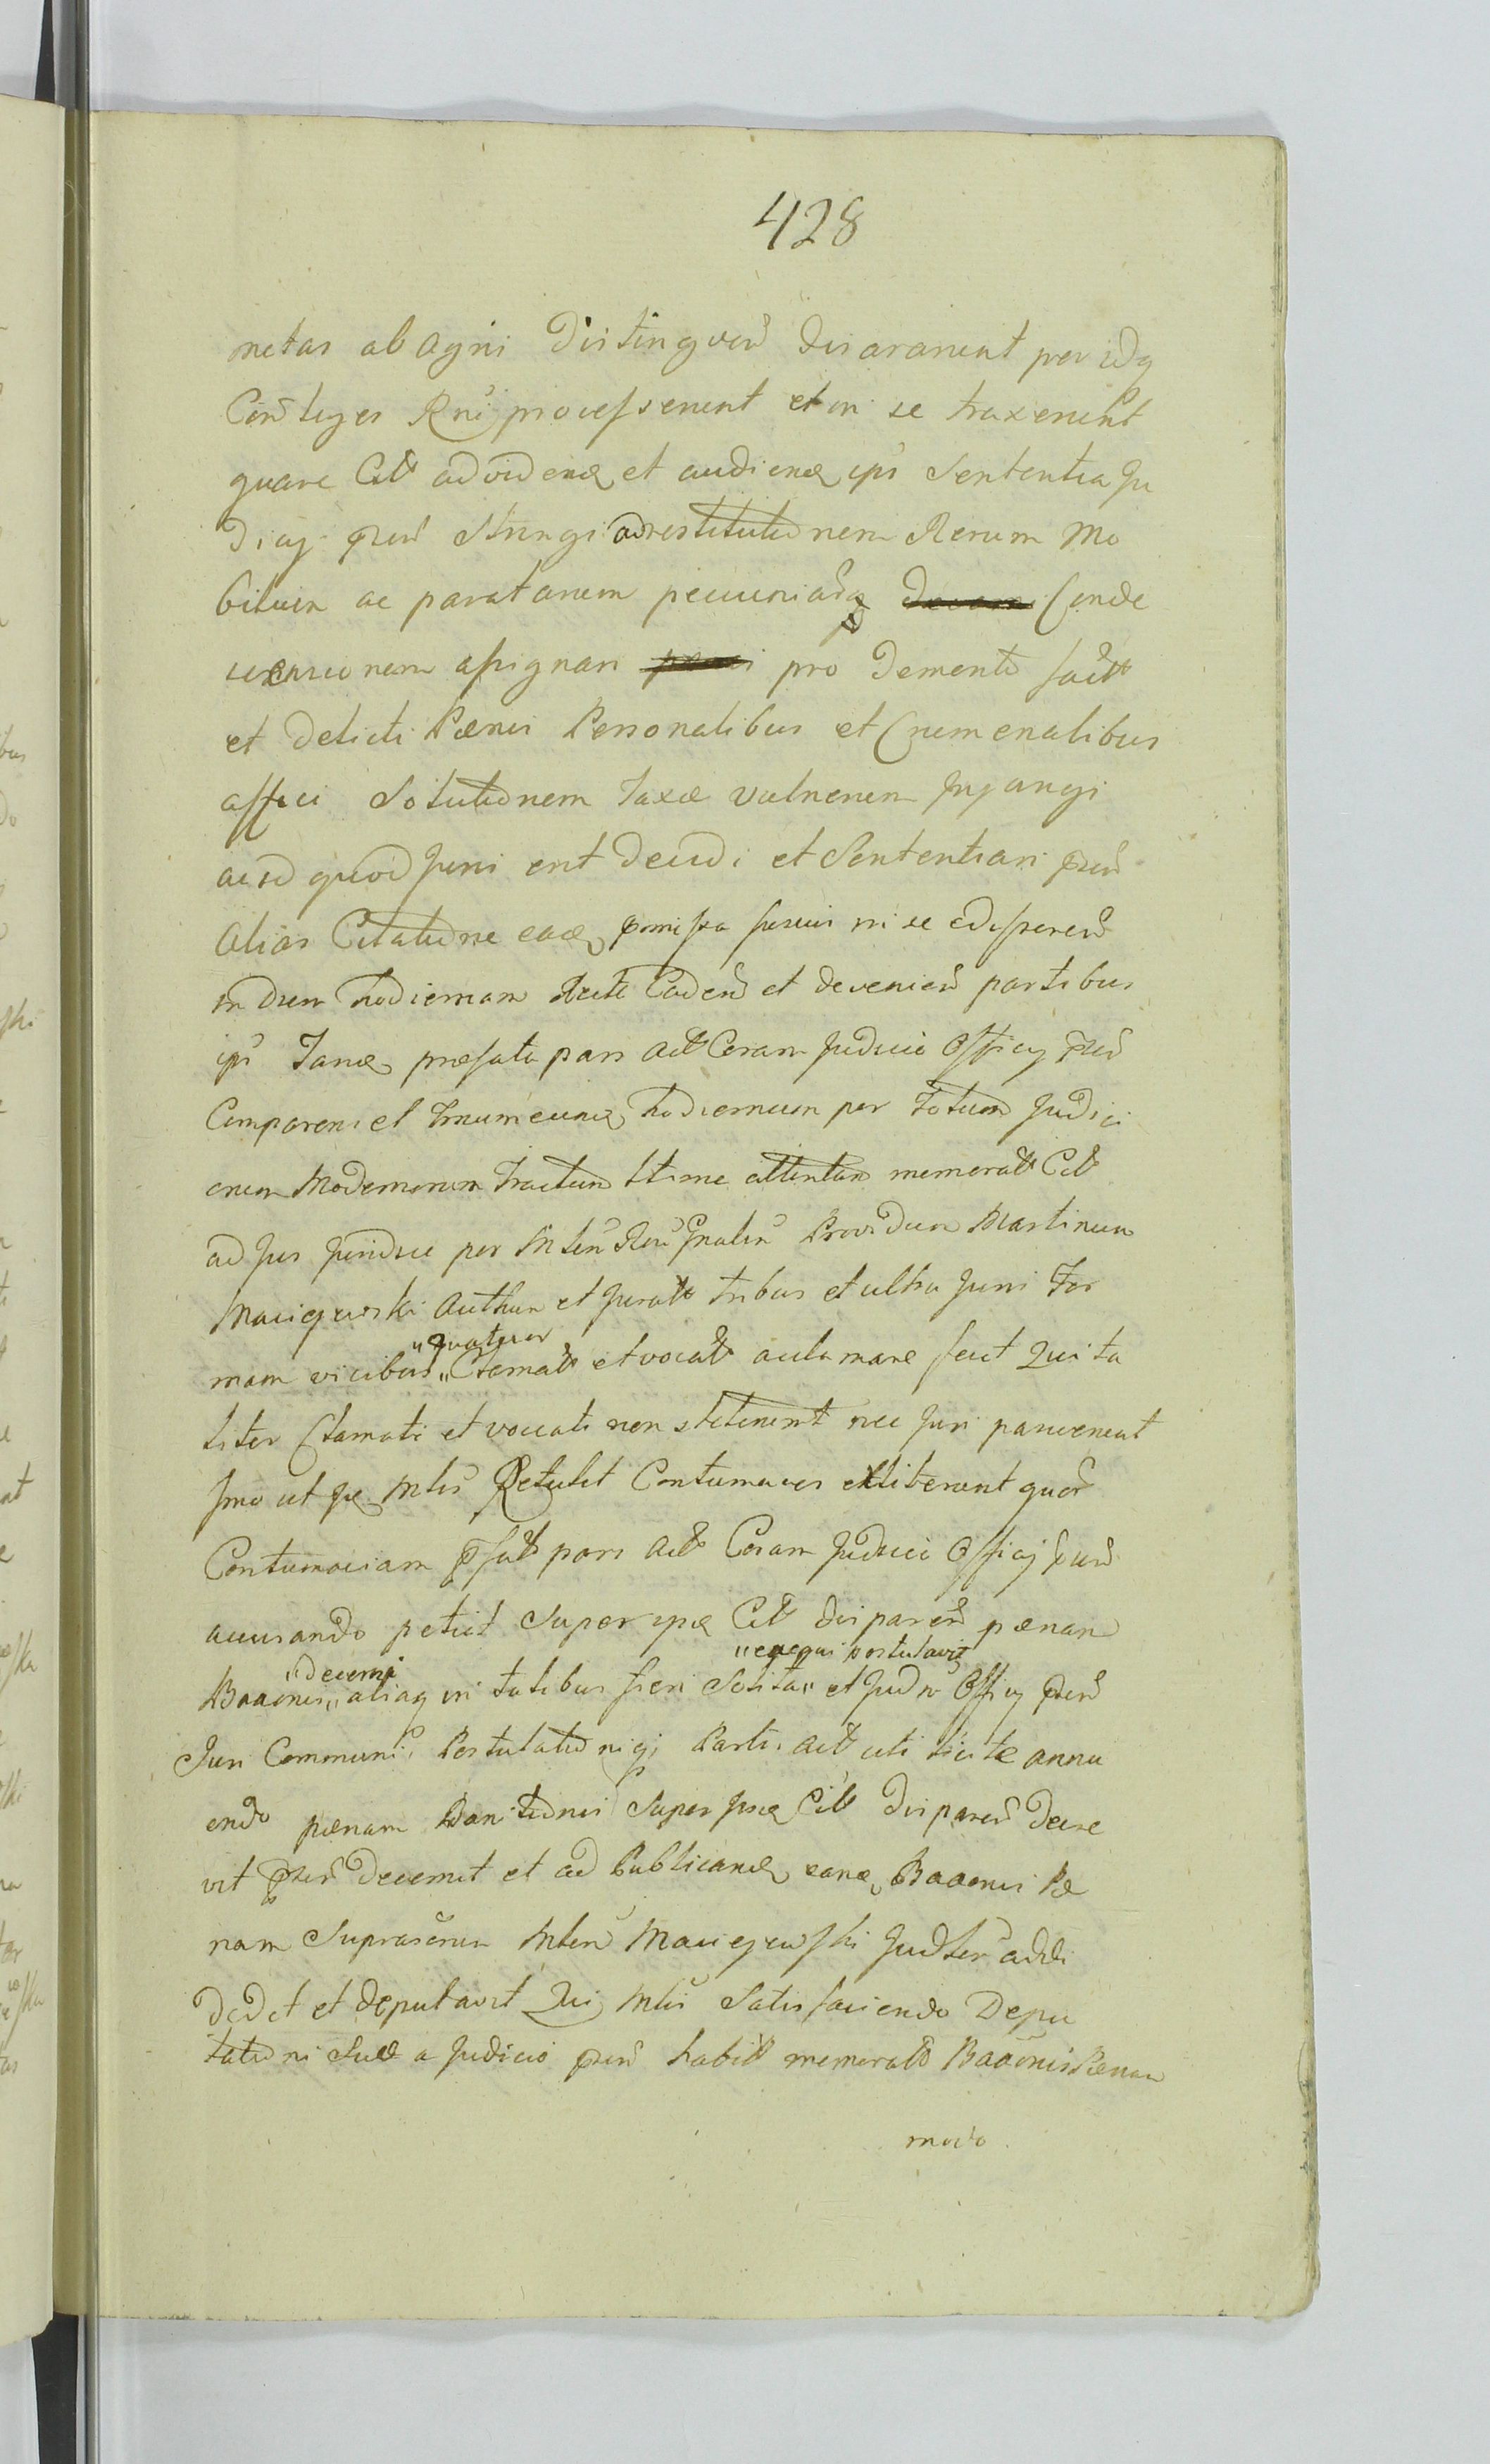 428
metas ab agris distinguen disaraverint per idq
Con leges Rni processerint et in se traxerint
quare Citt ad videnđ et audienđ ipsi Sententia Ju
dicij pñn stringi ad restitutionem Rerum Mo
bilium ac paratarum pecuniarq Conde
scensionem assignari pro demerito facti
et delicti Pænis Personalibus et Crumenalibus
affici Solutionem Taxæ vulnerum Injungi
ac id quod Juris erit decidi et Sententiari pñn
alias Citatione eađ pmissa fusius in se edisseren
in diem hodiernam Recte Caden et devenien partibus
ipsi Tanđ præfata pars Actt Coram Judicio Officij pñn
Comparens et Terminum eunđ hodiernum per Totum Judici
orum Modernorum Tractum lttime attentan memoratt Citt
ad Jus Juridice per Mlem Rni Gñalem Providum Martinum
Maciejewski Authen et Juratt tribus et ultra Juris For
mam vicibus „quatuor„ Clamatt et vocatt acclamare fecit Qui ta
liter Clamati et vocati non stetirint nec Juri paruerunt
Imo ut Ipse Mlis Retulit Contumaces extiterunt quor
Contumaciam pfatt pars Actt Coram Judicio Officij pñn
accusando petiit Super ipsis Citt disparen pænam
Baaonis „decerni„ aliaq in talibus fieri Solita „exequi postulavit„ et Judm Officij pñn
Juri Communi, Postulationiq; Partis Actt uti licitæ annu
endo pænam Banitionis Super Ipsis Citt disparen decre
vit pñn decernit et ad Publicanđ eanđ Baaonis Pæ
nam Suprascrum Mlem Maciejewski Judler addi
didit et deputavit Qui Mlis Satisfaciendo Depu
tationi Suæ a Judicio pñn habitæ memoratt Baaonis Pænam
modo